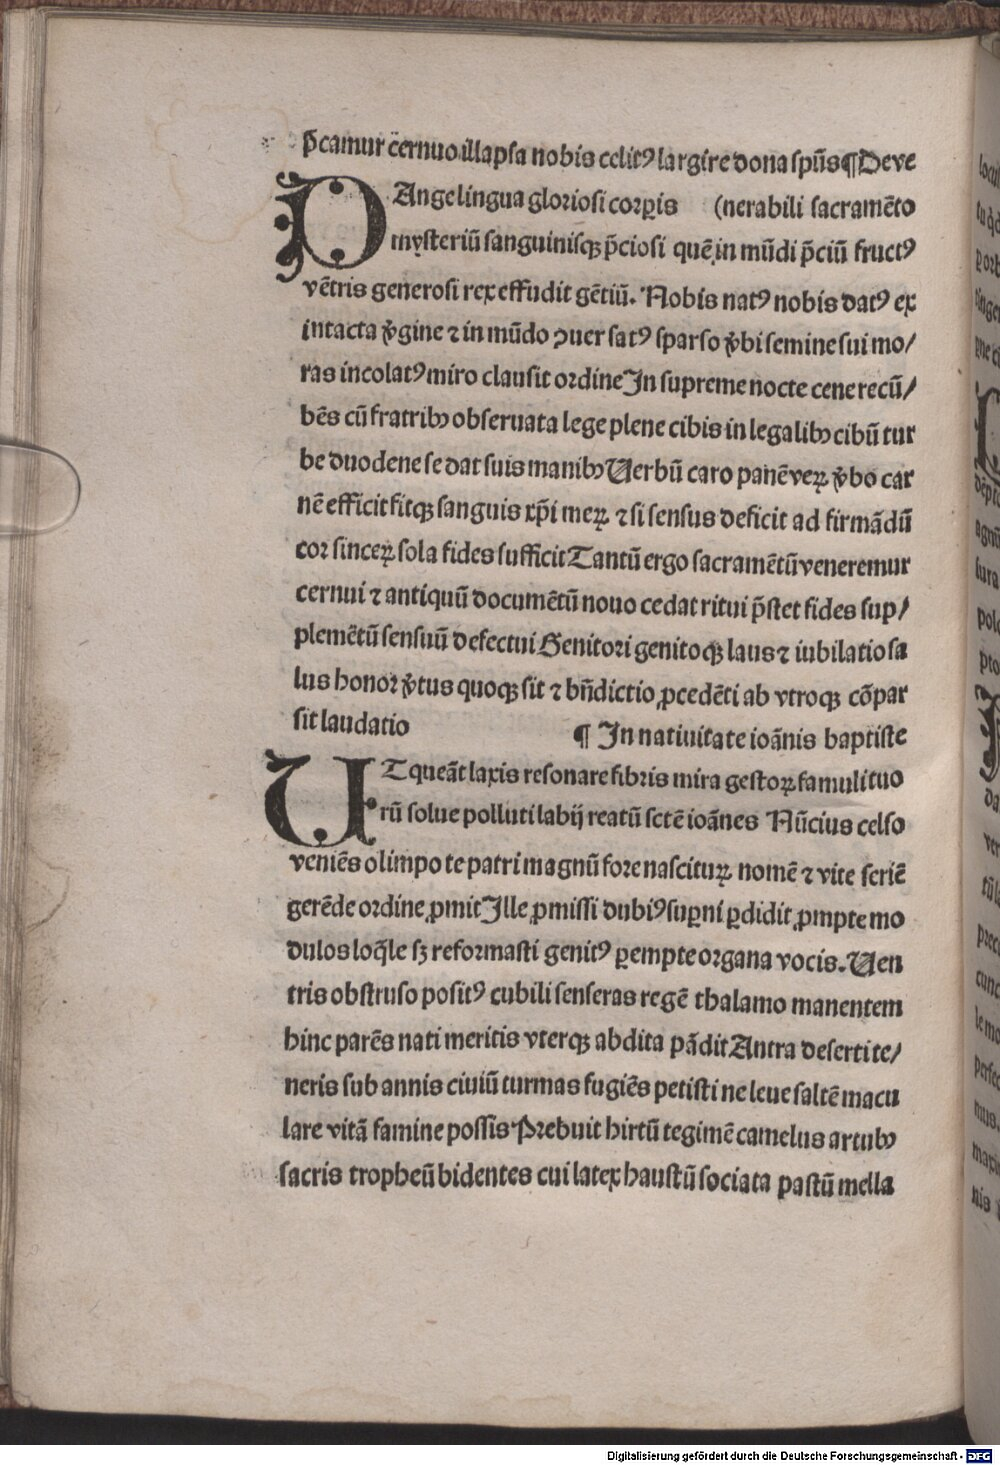 p̄camur cernuo illapsa nobis celitꝰ largire dona spūs ¶ De ve
PAnge lingua gloriosi corꝑis (nerabili sacramēto
mysteriū sanguinisqꝫ p̄ciosi quē in mūdi p̄ciū fructꝰ
vētris generosi rex effudit gētiū. Nobis natꝰ nobis datꝰ ex
intacta v̓gine ⁊ in mūdo ꝯuersatꝰ sparso v̓bi semine sui mo/
ras incolatꝰ miro clausit ordine In supreme nocte cene recū/
bēs cū fratribꝫ obseruata lege plene cibis in legalibꝫ cibū tur
be duodene se dat suis manibꝫ Uerbū caro panē veꝝ v̓bo car
nē efficit fitqꝫ sanguis xp̄i meꝝ ⁊ si sensus deficit ad firmādū
cor sinceꝝ sola fides sufficit Tantū ergo sacramētū veneremur
cernui ⁊ antiquū documētū nouo cedat ritui p̄stet fides sup/
plemētū sensuū defectui Genitori genitoqꝫ laus ⁊ iubilatio sa
lus honor v̓tus quoqꝫ sit ⁊ bn̄dictio ꝓcedēti ab vtroqꝫ cōpar
sit laudatio ¶ In natiuitate ioānis baptiste
UT queāt laxis resonare fibris mira gestoꝝ famuli tuo
rū solue polluti labij reatū sctē ioānes Nūcius celso
veniēs olimpo te patri magnū fore nascituꝝ nomē ⁊ vite seriē
gerēde ordine ꝓmit Ille ꝓmissi dubiꝰ suꝑni ꝑdidit ꝓmpte mo
dulos loq̄le sꝫ reformasti genitꝰ ꝑempte organa vocis. Uen
tris obstruso positꝰ cubili senseras regē thalamo manentem
hinc parēs nati meritis vterqꝫ abdita pādit Antra deserti te/
neris sub annis ciuiū turmas fugiēs petisti ne leue saltē macu
lare vitā famine possis Prebuit hirtū tegimē camelus artubꝫ
sacris tropheū bidentes cui latex haustū sociata pastū mella
Digitalisierung gefördert durch die Deutsche Forschungsgemeinschaft - DFG